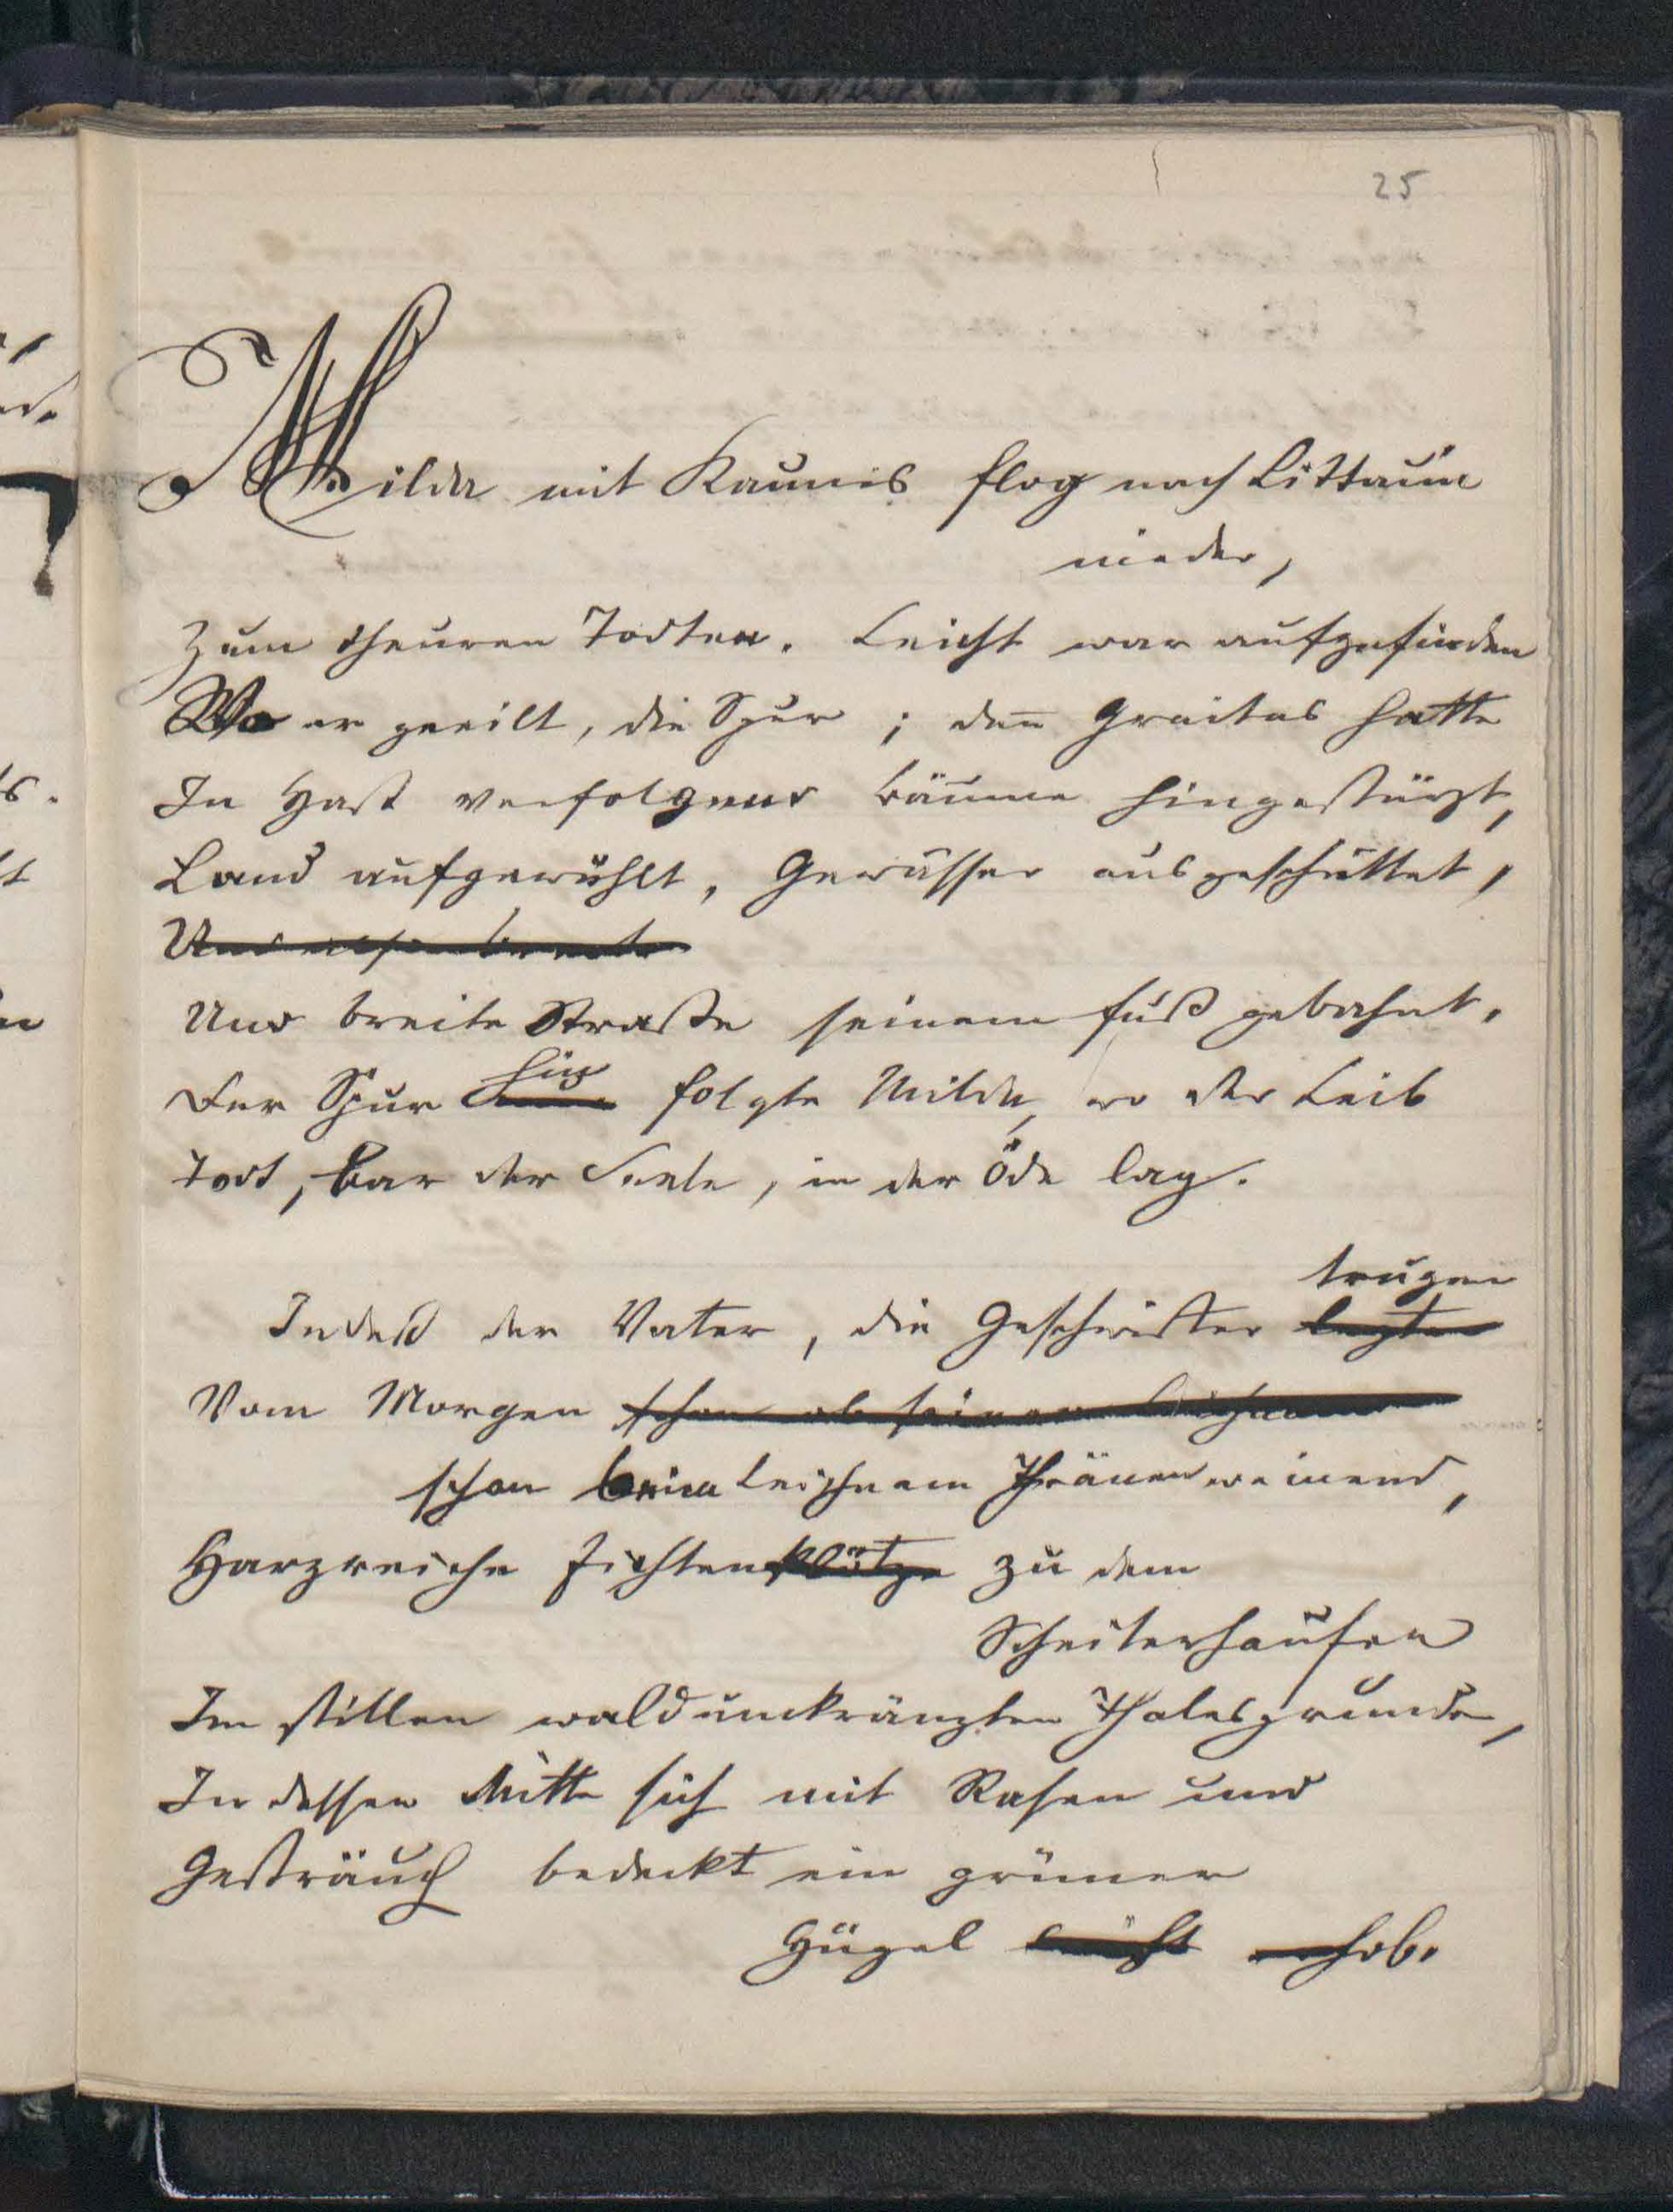 25
Milda mit Kaunis flog nach Littaun
nieder,
Zum theuren Todten. Leicht war aufzufinden
Wo er geeilt, die Spur; den̄ Graitas hatte
In Hast verfolgend Bäume hingestürzt,
Land aufgewühlt, Gewässer ausgeschüttet,
Und
Und breite Straße seinem Fuß gebahnt.
Der Spur hin folgte Milda, wo der Leib
Todt, bar der Seele, in der Öde lag.
trugen
Indeß der Vater, die Geschwister legten
Vom Morgen schon ob seinem Leichnam
schon beim Leichnam Thränen weinend,
Harzreiche Fichtenklötze zu dem
Scheiterhaufen
Im stillen waldumkränzten Thalesgrunde,
In dessen Mitte sich mit Rasen und
Gesträuch bedeckt ein grüner
Hügel erhob.